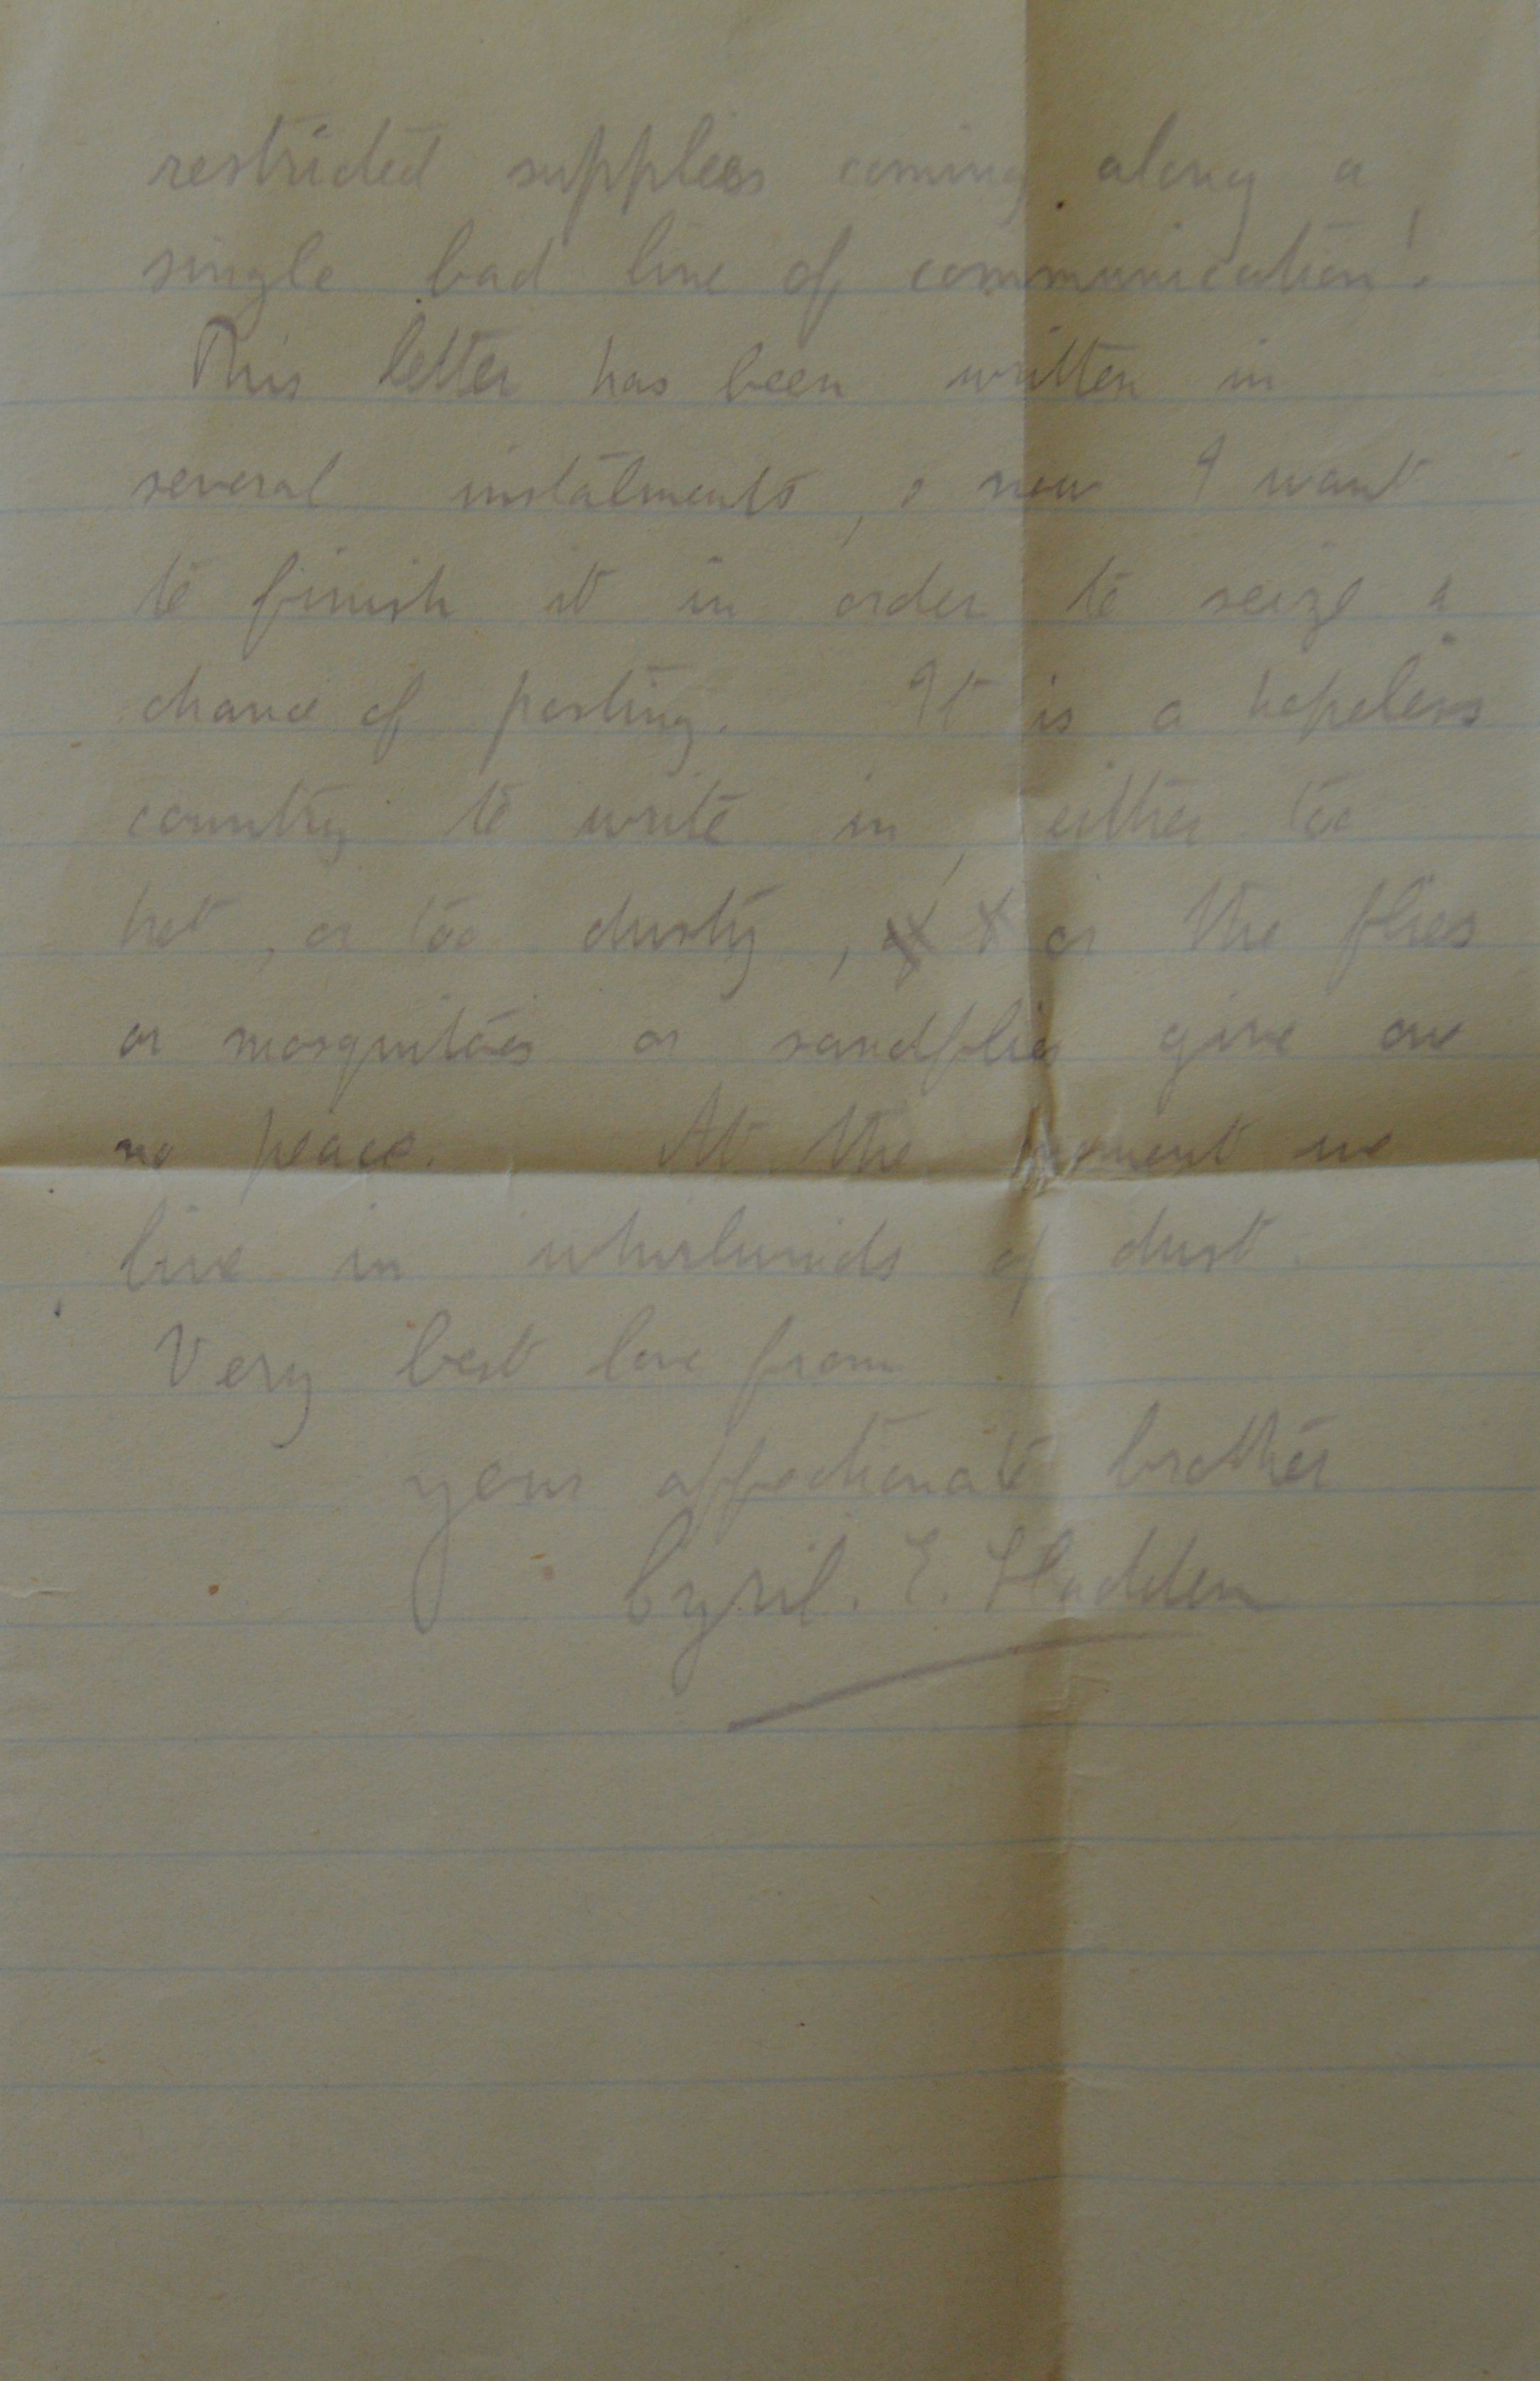 restricted supplies coming along a
single bad line of communication!
This letter has been written in
several instalments, & now I want
to finish it in order to seize a
chance of posting. It is a hopeless
country to write in, either too
hot, or too dusty, or the flies
or mosquitoes or sandflies give one
no peace. At the moment we
live in whirlwinds of dust.
Very best love from
your affectionate brother
Cyril. E. Hadden